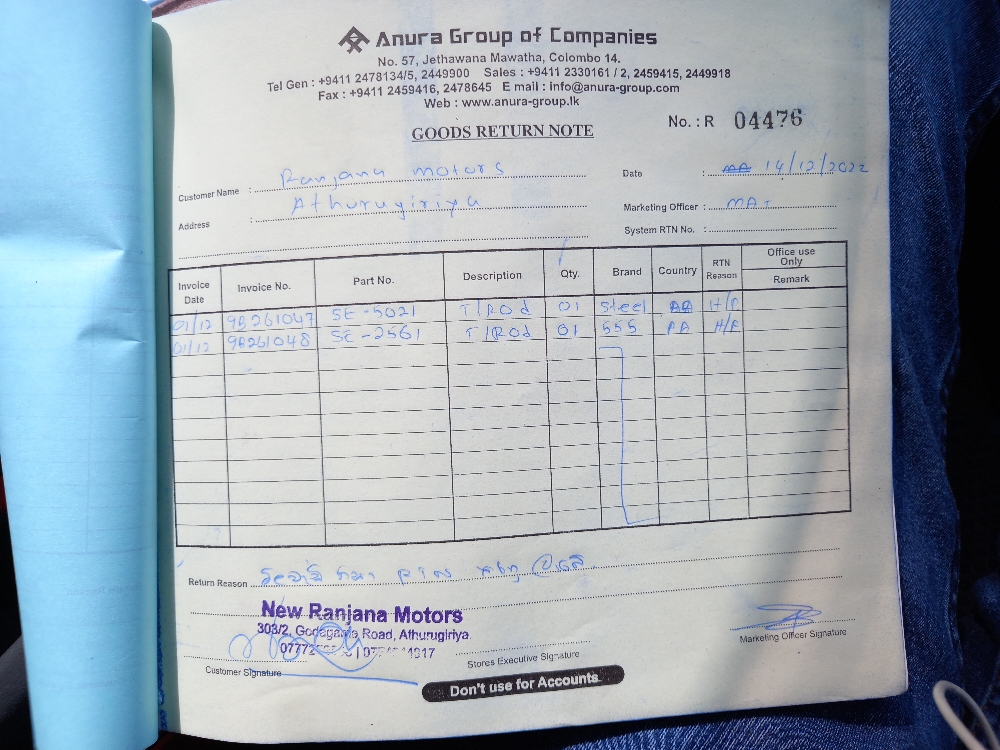 Anura Group of Companies
No. 57, Jethawana Mawatha, Colombo 14.
Tel Gen : +9411 2478134/5, 2449900 Sales : +9411 2330161 / 2, 2459415, 2449918
Fax : +9411 2459416, 2478645 E mail : info@anura-group.com
Web : www.anura-group.lk
GOODS RETURN NOTE
No. : R 04476
Customer Name : Ranjana motors
Date : 14/12/2022
Address : Athurugiriya
Marketing Officer : MA
System RTN No. :
Invoice Date Invoice No. Part No. Description Qty. Brand Country RTN Reason Office use Only Remark
01/12 9B261047 SE-5021 T/Rod 01 Steel H/R
01/12 9B261048 SE-2561 T/Rod 01 555 H/R
Return Reason
New Ranjana Motors
303/2, Godagama Road, Athurugiriya.
Customer Signature
Stores Executive Signature
Marketing Officer Signature
Don't use for Accounts.